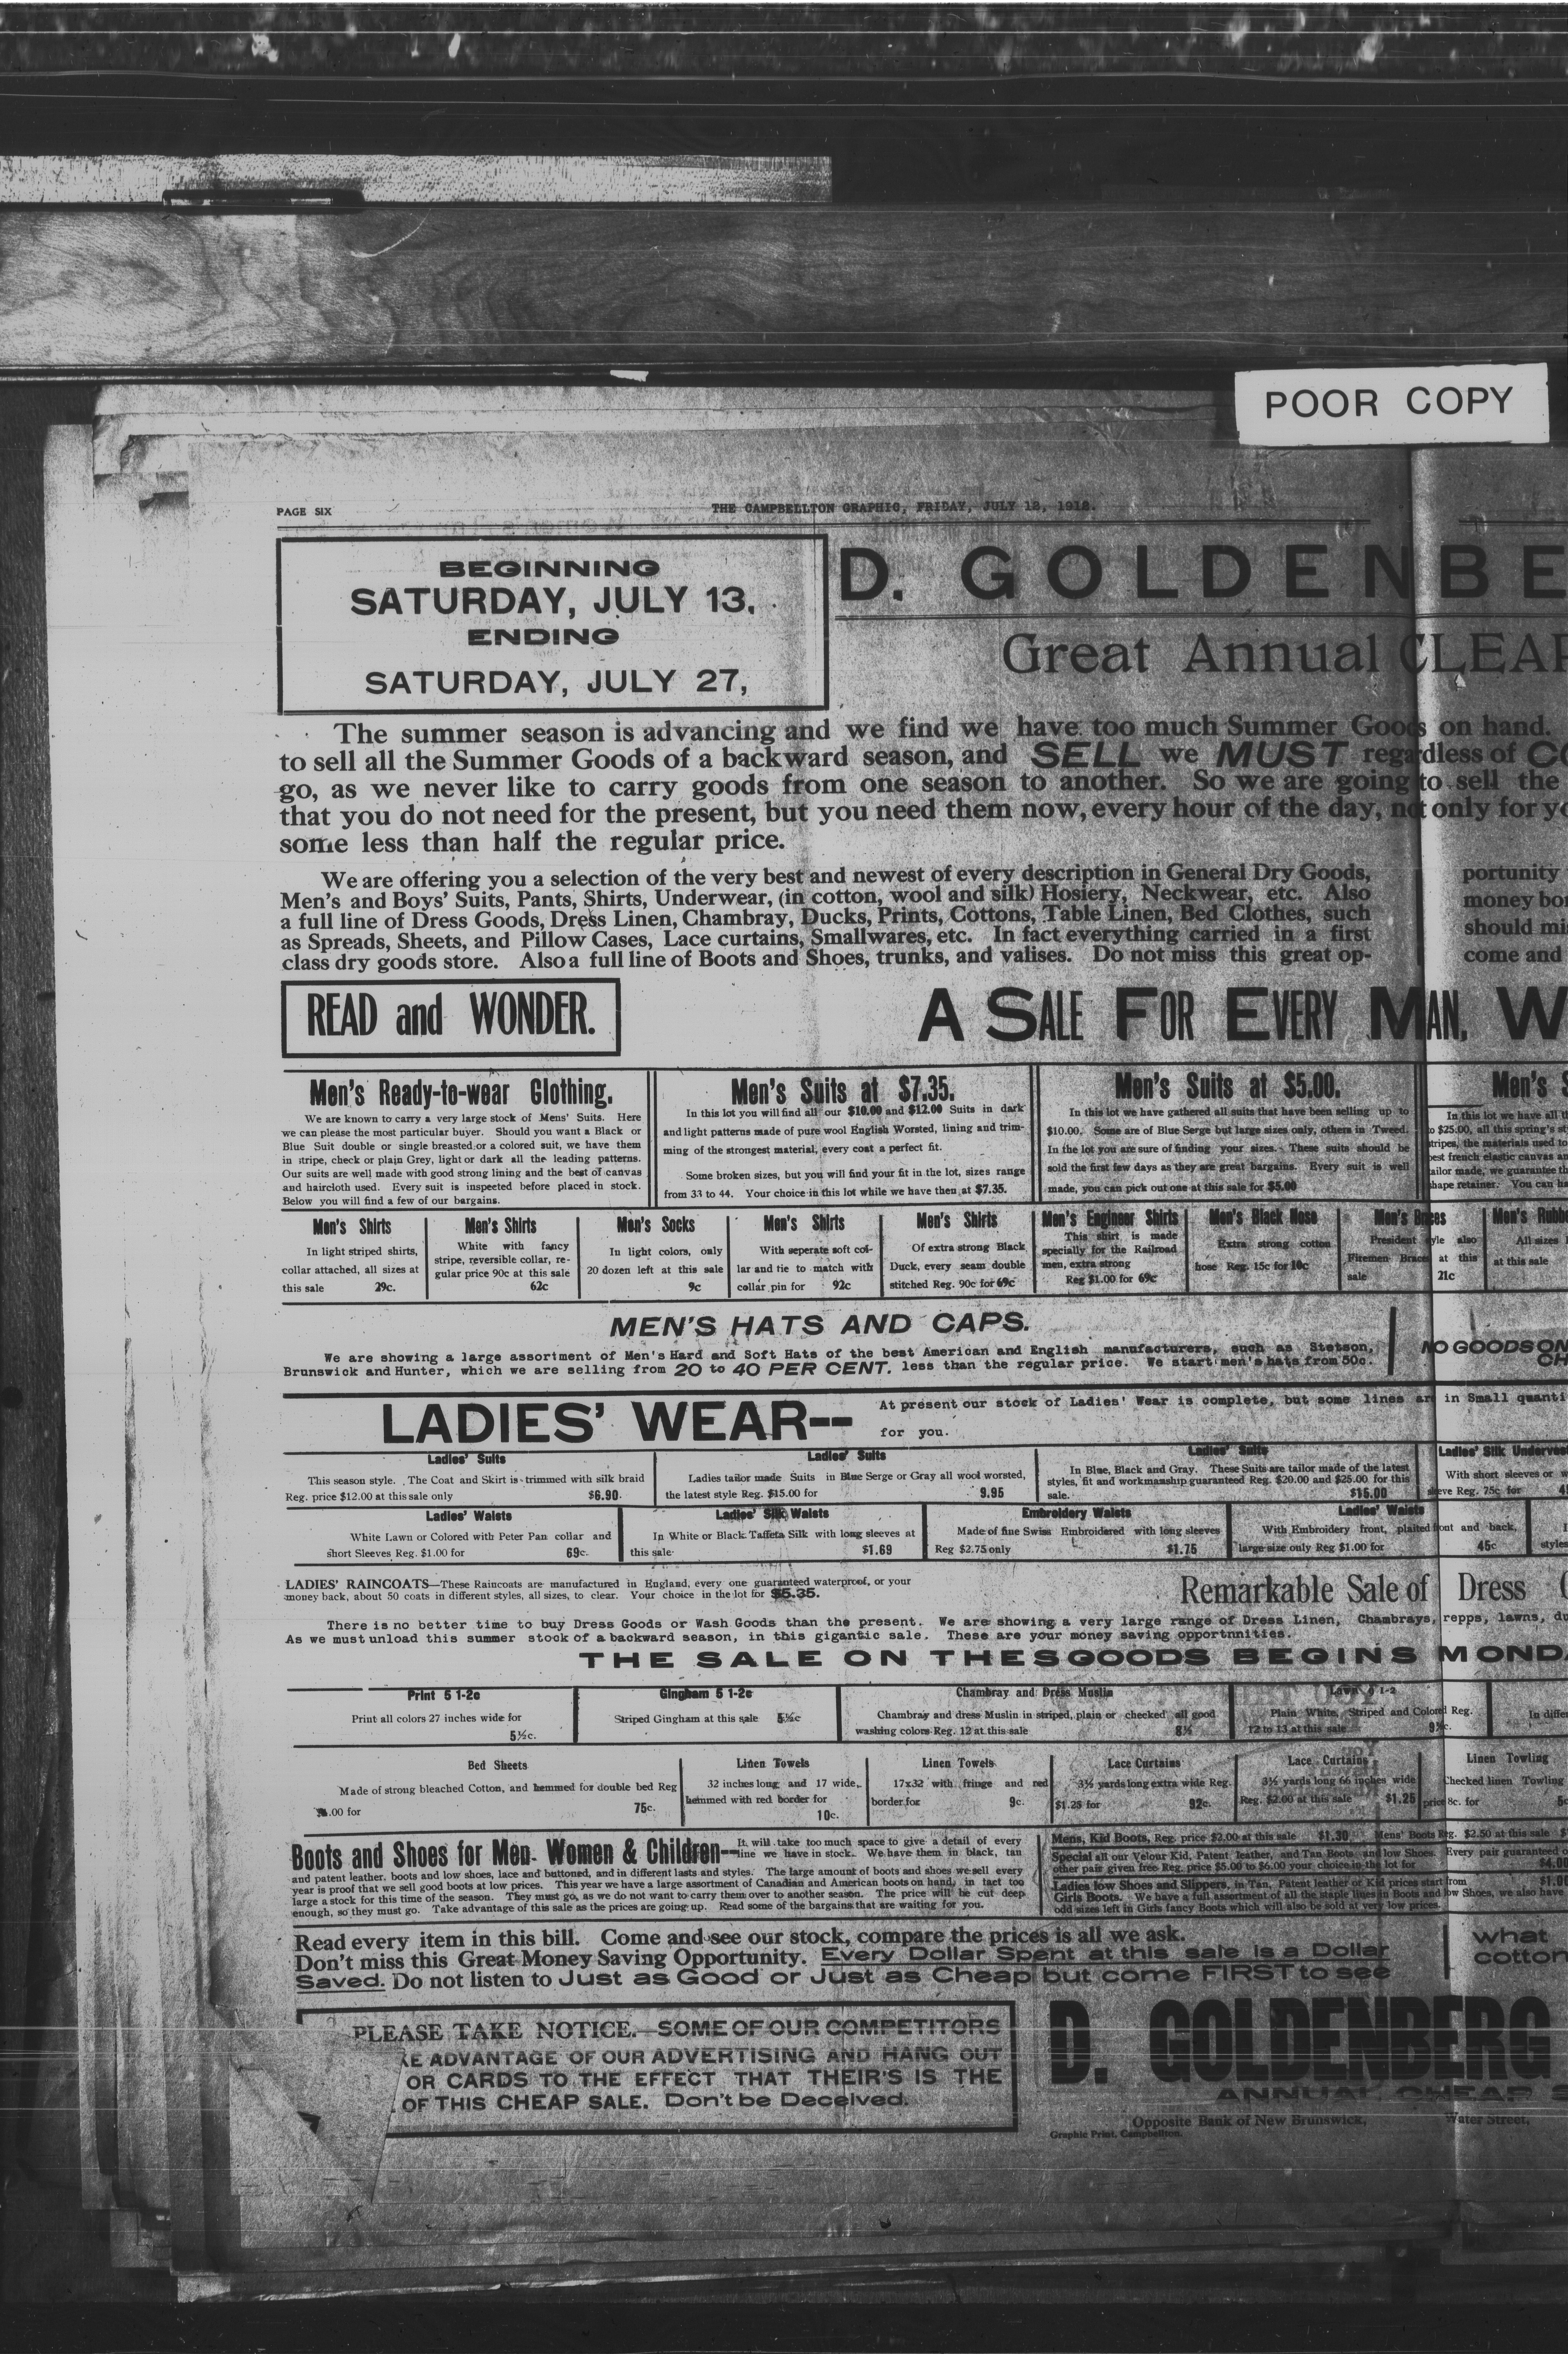 POOR COPY
PAGE SIX
THE CAMPBELLTON GRAPHIC, FRIDAY, JULY 12, 1912.
BEGINNING
SATURDAY, JULY 13,
ENDING
SATURDAY, JULY 27,
D. GOLDENBE
Great Annual CLEAR
The summer season is advancing and we find we have too much Summer Goods on hand.
to sell all the Summer Goods of a backward season, and SELL we MUST regardless of CO
go, as we never like to carry goods from one season to another. So we are going to sell the
that you do not need for the present, but you need them now, every hour of the day, not only for yo
some less than half the regular price.
We are offering you a selection of the very best and newest of every description in General Dry Goods,
Men's and Boys' Suits, Pants, Shirts, Underwear, (in cotton, wool and silk) Hosiery, Neckwear, etc. Also
a full line of Dress Goods, Dress Linen, Chambray, Ducks, Prints, Cottons, Table Linen, Bed Clothes, such
as Spreads, Sheets, and Pillow Cases, Lace curtains, Smallwares, etc. In fact everything carried in a first
class dry goods store. Also a full line of Boots and Shoes, trunks, and valises. Do not miss this great op-
portunity
money bor
should mis
come and
READ and WONDER.
A SALE FOR EVERY MAN, W
Men's Ready-to-wear Clothing.
We are known to carry a very large stock of Mens' Suits. Here
we can please the most particular buyer. Should you want a Black or
Blue Suit double or single breasted or a colored suit, we have them
in stripe, check or plain Grey, light or dark all the leading patterns.
Our suits are well made with good strong lining and the best of canvas
and haircloth used. Every suit is inspected before placed in stock.
Below you will find a few of our bargains.
Men's Suits at $7.35.
In this lot you will find all our $10.00 and $12.00 Suits in dark
and light patterns made of pure wool English Worsted, lining and trim-
ming of the strongest material, every coat a perfect fit.
Some broken sizes, but you will find your fit in the lot, sizes range
from 33 to 44. Your choice in this lot while we have then at $7.35.
Men's Suits at $5.00.
In this lot we have gathered all suits that have been selling up to
$10.00. Some are of Blue Serge but large sizes only, others in Tweed.
In the lot you are sure of finding your sizes. These suits should be
sold the first few days as they are great bargains. Every suit is well
made, you can pick out one at this sale for $5.00
Men's S
In this lot we have all t
o $25.00, all this spring's st
tripes, the materials used to
best french elastic canvas an
tailor made, we guarantee th
shape retainer. You can ha
Men's Shirts
In light striped shirts,
collar attached, all sizes at
this sale 29c.
Men's Shirts
White with fancy
stripe, reversible collar, re-
gular price 90c at this sale
62c
Men's Socks
In light colors, only
20 dozen left at this sale
9c
Men's Shirts
With seperate soft col-
lar and tie to match with
collar pin for 92c
Men's Shirts
Of extra strong Black
Duck, every seam double
stitched Reg. 90c for 69c
Men's Engineer Shirts
This shirt is made
specially for the Railroad
men, extra strong
Reg $1.00 for 69c
Men's Black Hose
Extra strong cotton
hose Reg. 15c for 10c
Men's Braces
President style also
Firemen Braces at this
sale 21c
Men's Rubbe
All sizes
at this sale
MEN'S HATS AND CAPS.
We are showing a large assortment of Men's Hard and Soft Hats of the best American and English manufacturers, such as Stetson,
Brunswick and Hunter, which we are selling from 20 to 40 PER CENT. less than the regular price. We start men's hats from 50c.
NO GOODS ON
CH
LADIES' WEAR--
At present our stock of Ladies' Wear is complete, but some lines are in Small quanti
for you.
Ladies' Suits
This season style. The Coat and Skirt is trimmed with silk braid
Reg. price $12.00 at this sale only $6.90.
Ladies' Suits
Ladies tailor made Suits in Blue Serge or Gray all wool worsted,
the latest style Reg. $15.00 for 9.95
Ladies' Suits
In Blue, Black and Gray. These Suits are tailor made of the latest
styles, fit and workmanship guaranteed Reg. $20.00 and $25.00 for this
sale. $15.00
Ladies' Silk Underves
With short sleeves or w
sleeve Reg. 75c for 4
Ladies' Waists
White Lawn or Colored with Peter Pan collar and
short Sleeves Reg. $1.00 for 69c.
Ladies' Silk Waists
In White or Black Taffeta Silk with long sleeves at
this sale $1.69
Embroidery Waists
Made of fine Swiss Embroidered with long sleeves
Reg $2.75 only $1.75
Ladies' Waists
With Embroidery front, plaited front and back,
large size only Reg $1.00 for 45c
styles
LADIES' RAINCOATS—These Raincoats are manufactured in England, every one guaranteed waterproof, or your
money back, about 50 coats in different styles, all sizes, to clear. Your choice in the lot for $5.35.
Remarkable Sale of Dress
There is no better time to buy Dress Goods or Wash Goods than the present. We are showing a very large range of Dress Linen, Chambrays, repps, lawns, du
As we must unload this summer stock of a backward season, in this gigantic sale. These are your money saving opportnnities.
THE SALE ON THESGOODS BEGINS MONDA
Print 5 1-2c
Print all colors 27 inches wide for
5½c.
Gingham 5 1-2c
Striped Gingham at this sale 5½c
Chambray and Dress Muslin
Chambray and dress Muslin in striped, plain or checked all good
washing colors Reg. 12 at this sale 8½
Lawn 9 1-2
Plain White, Striped and Colored Reg.
12 to 13 at this sale 9½c.
In differ
Bed Sheets
Made of strong bleached Cotton, and hemmed for double bed Reg
.00 for 75c.
Linen Towels
32 inches long and 17 wide,
hemmed with red border for
10c.
Linen Towels
17x32 with fringe and red
border for 9c.
Lace Curtains
3½ yards long extra wide Reg.
$1.25 for 92c.
Lace Curtains
3½ yards long 66 inches wide
Reg. $2.00 at this sale $1.25
Linen Towling
Checked linen Towling
price 8c. for 5c
Boots and Shoes for Men- Women & Children--
It will take too much space to give a detail of every
line we have in stock. We have them in black, tan
and patent leather, boots and low shoes, lace and buttoned, and in different lasts and styles. The large amount of boots and shoes we sell every
year is proof that we sell good boots at low prices. This year we have a large assortment of Canadian and American boots on hand, in tact too
large a stock for this time of the season. They must go, as we do not want to carry them over to another season. The price will be cut deep
enough, so they must go. Take advantage of this sale as the prices are going up. Read some of the bargains that are waiting for you.
Mens, Kid Boots, Reg. price $2.00 at this sale $1.30 Mens' Boots Reg. $2.50 at this sale
Special all our Velour Kid, Patent leather, and Tan Boots and low Shoes. Every pair guaranteed o
other pair given free Reg. price $5.00 to $6.00 your choice in the lot for $4.00
Ladies low Shoes and Slippers, in Tan, Patent leather or Kid prices start from $1.00
Girls Boots. We have a full assortment of all the staple lines in Boots and low Shoes, we also have
odd sizes left in Girls fancy Boots which will also be sold at very low prices.
Read every item in this bill. Come and see our stock, compare the prices is all we ask.
Don't miss this Great Money Saving Opportunity. Every Dollar Spent at this sale is a Dollar
Saved. Do not listen to Just as Good or Just as Cheap but come FIRST to see
what
cotton
PLEASE TAKE NOTICE.—SOME OF OUR COMPETITORS
KE ADVANTAGE OF OUR ADVERTISING AND HANG OUT
OR CARDS TO THE EFFECT THAT THEIR'S IS THE
OF THIS CHEAP SALE. Don't be Deceived.
D. GOLDENBERG
ANNUAL CHEAP S
Opposite Bank of New Brunswick, Water Street,
Graphic Print, Campbellton.